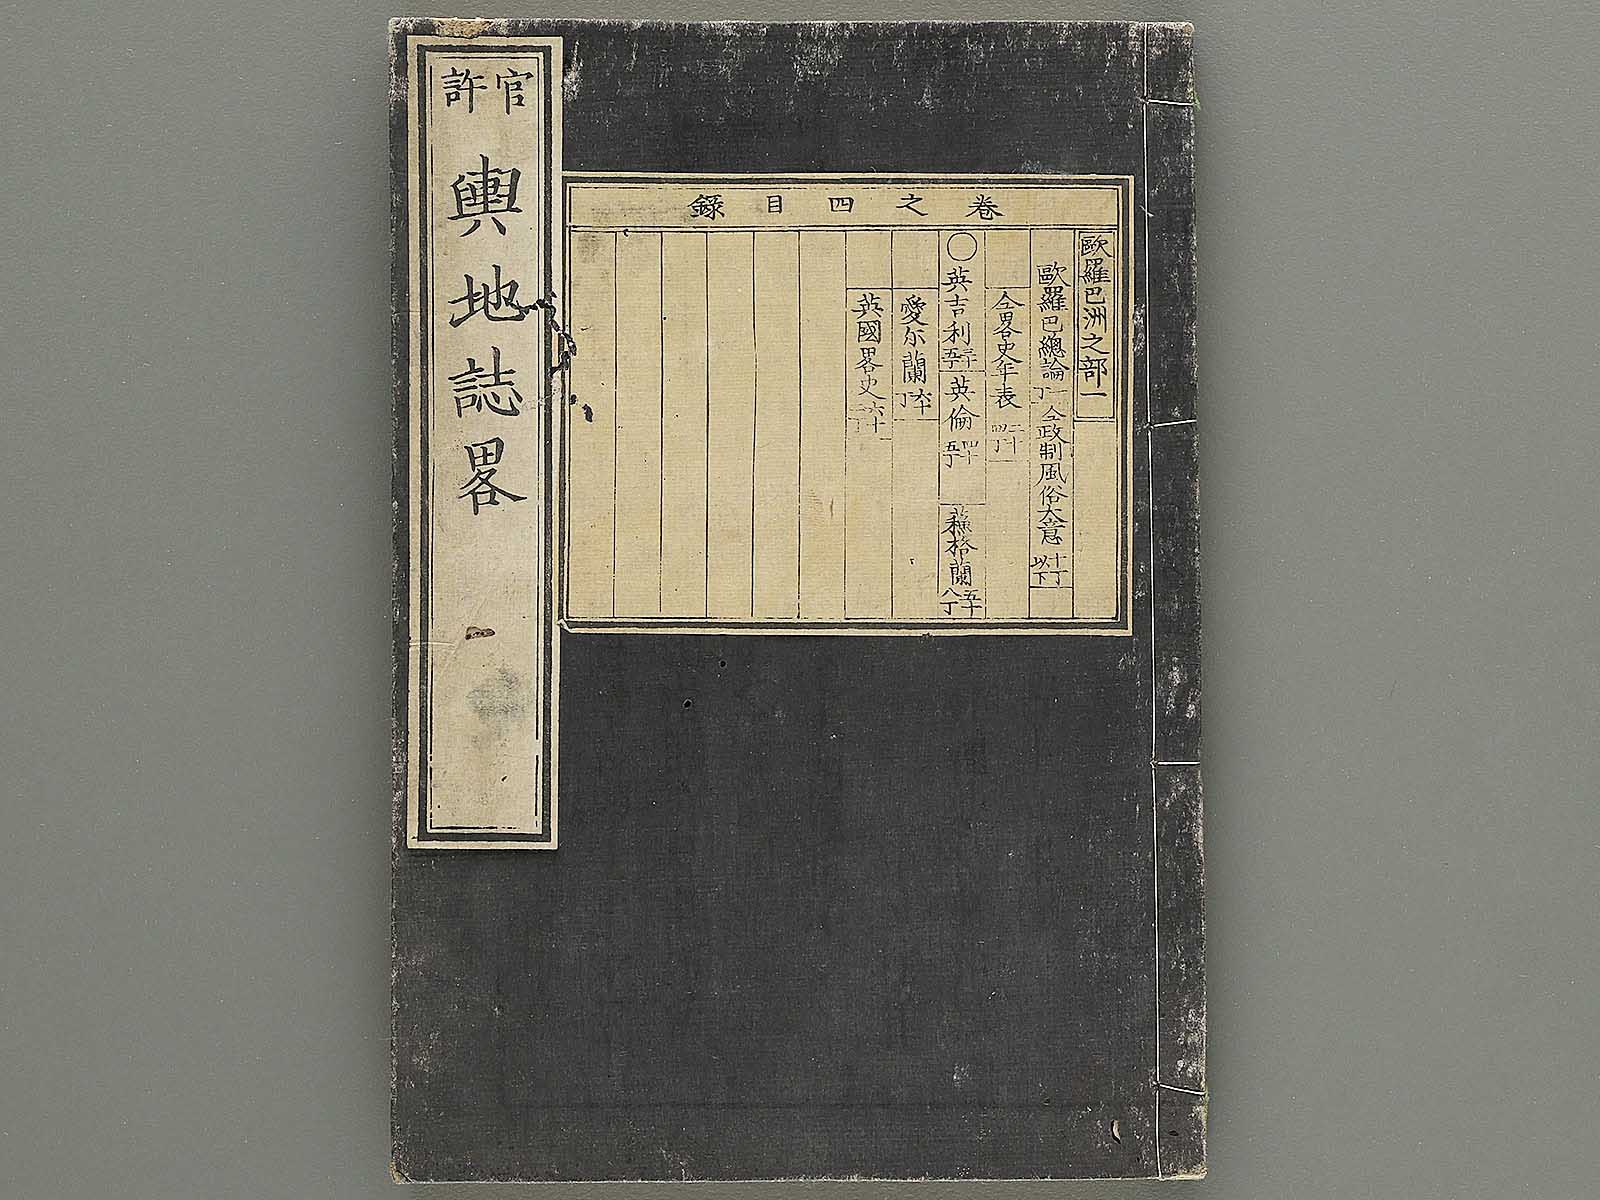 官許
輿地誌畧
卷之四目錄
歐羅巴洲之部一
歐羅巴總論 一丁 仝政制風俗大意 十丁以下
仝畧史年表 二十四丁
〇英吉利 英倫 四十五丁 蘇格蘭 五十八丁
愛尓蘭 六十丁
英國畧史 六十